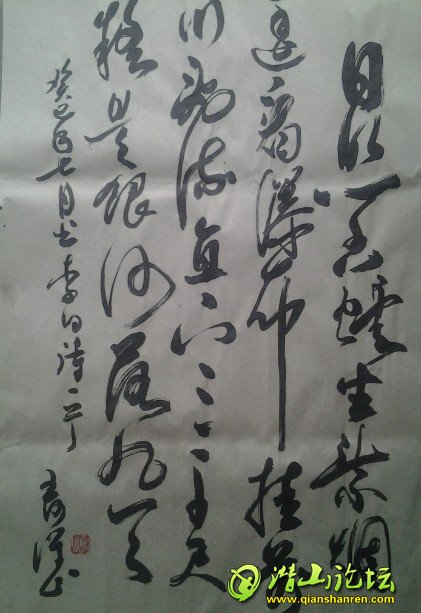 日照香炉生紫烟
遥看瀑布挂前
川飞流直下三千尺
疑是银河落九天
癸巳年七月书李白诗一首
潜山论坛
www.qianshanren.com